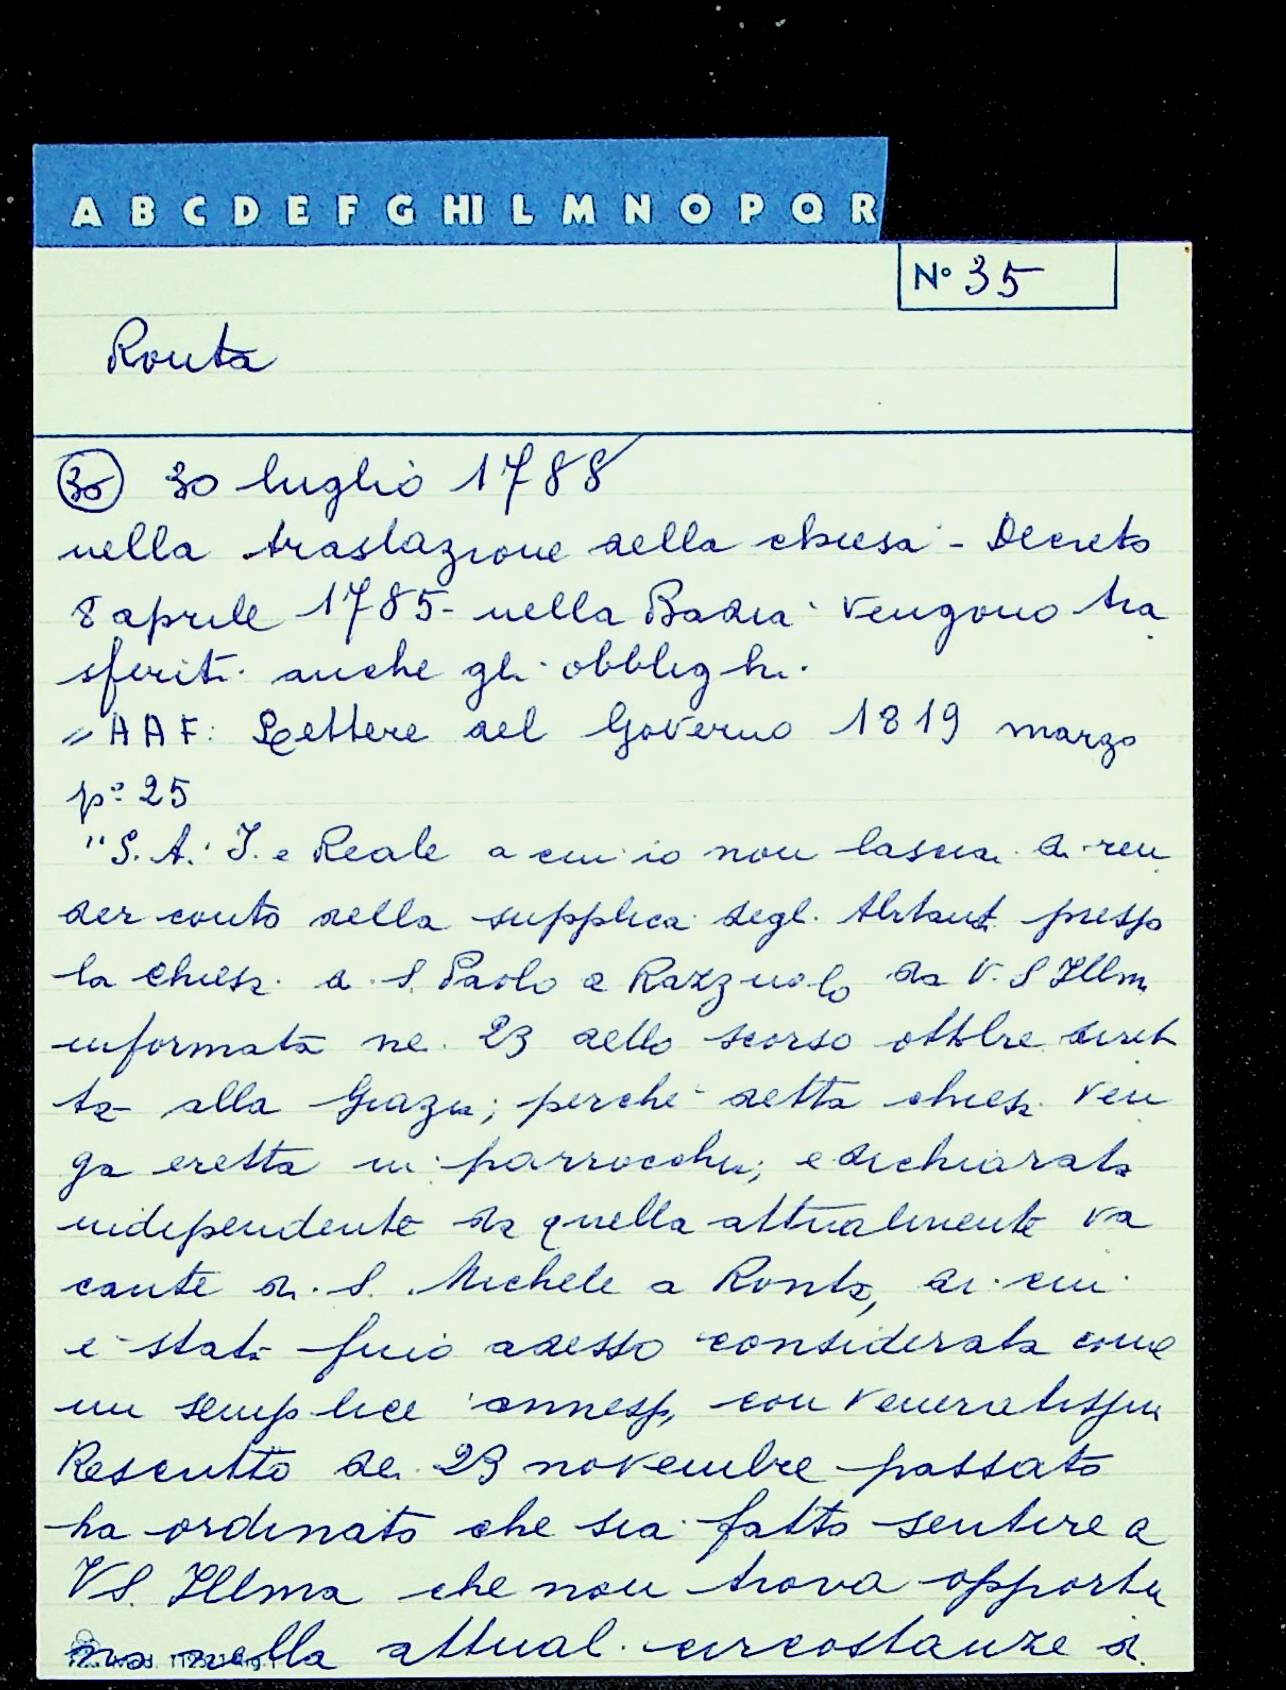 A B C D E F G HI L M N O P Q R
N° 35
Ronta
30 30 luglio 1788
nella traslazione della chiesa - Decreto
8 aprile 1785 - nella Badia vengono tra
sferiti anche gli obblighi.
= AAF: Lettere del Governo 1819 marzo
p° 25
"S. A. I. e Reale a cui io non lasciai di ren
der conto della supplica degl. Abitant. presso
la chiesa di S. Paolo a Razzuolo da V. S Illm
informata ne. 23 dello scorso ottobre diret
ta alla Grazia; perchè detta chiesa ven
ga eretta in parrocchia; e dichiarata
indipendente da quella attualmente va
cante di S. Michele a Ronta, di cui
è stata fino adesso considerata come
un semplice annesso, con veneratissimo
Rescritto dei 29 novembre passato
ha ordinato che sia fatto sentire a
VS. Illma che non trova opportu
no nella attual. circostanze di